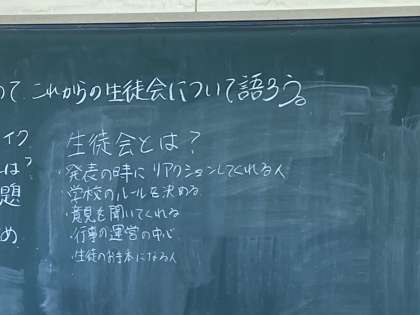 って、これからの生徒会について語ろう。
イク
は？
題
め
生徒会とは？
・発表の時にリアクションしてくれる人
・学校のルールを決める
・意見を聞いてくれる
・行事の運営の中心
・生徒のお手本になる人